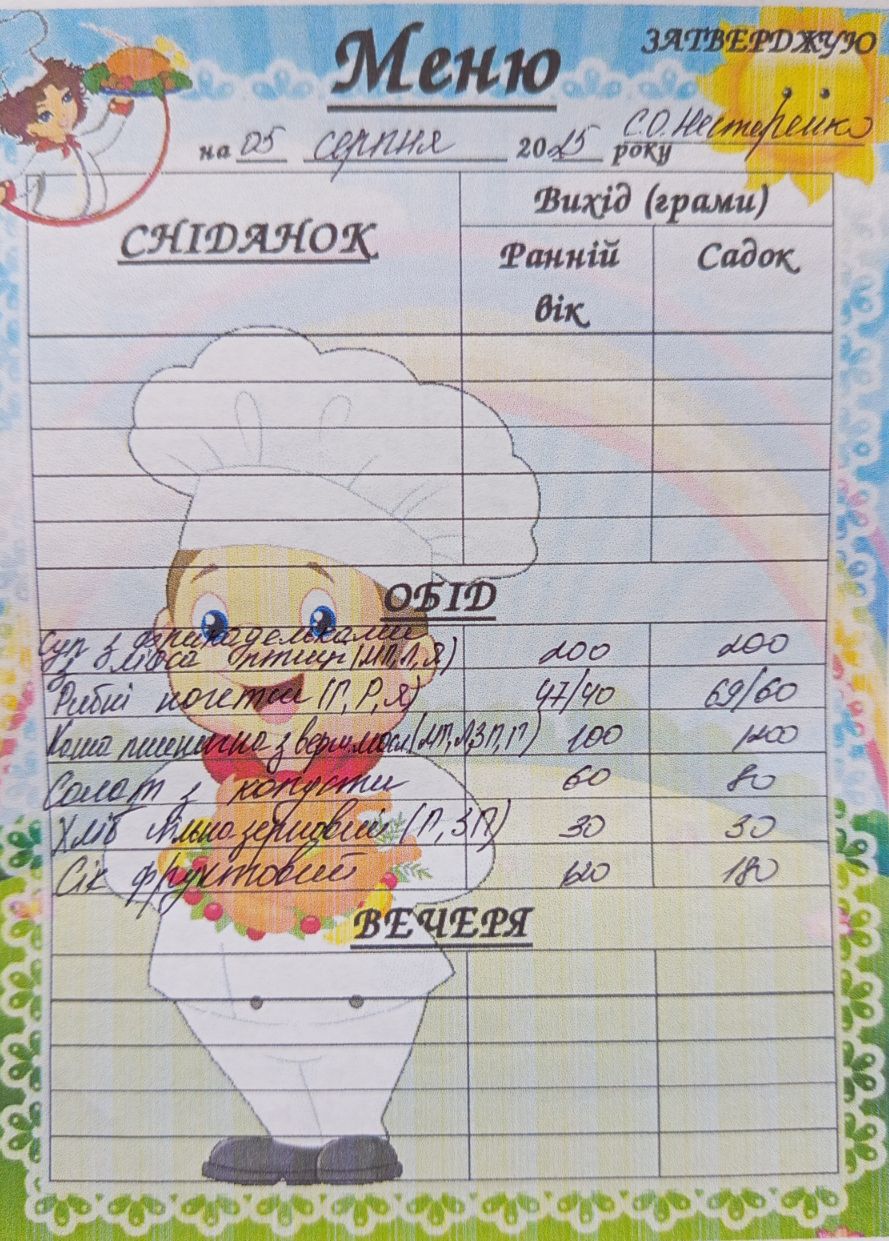 Меню
ЗАТВЕРДЖУЮ
С.О. Нестеренко
на 05 серпня 2025 року
СНІДАНОК
Вихід (грами)
Ранній вік
Садок
ОБІД
Суп з фрикадельками
з м'яса птиці (МП, Л, Я) 200 200
Рибні нагетси (Г, Р, Я) 47/40 69/60
Каша пшенична з верш. маслом (МП, ЛЗП, Г) 100 120
Салат з капусти 60 80
Хліб цільнозерновий (Г, ЗП) 30 30
Сік фруктовий 120 180
ВЕЧЕРЯ